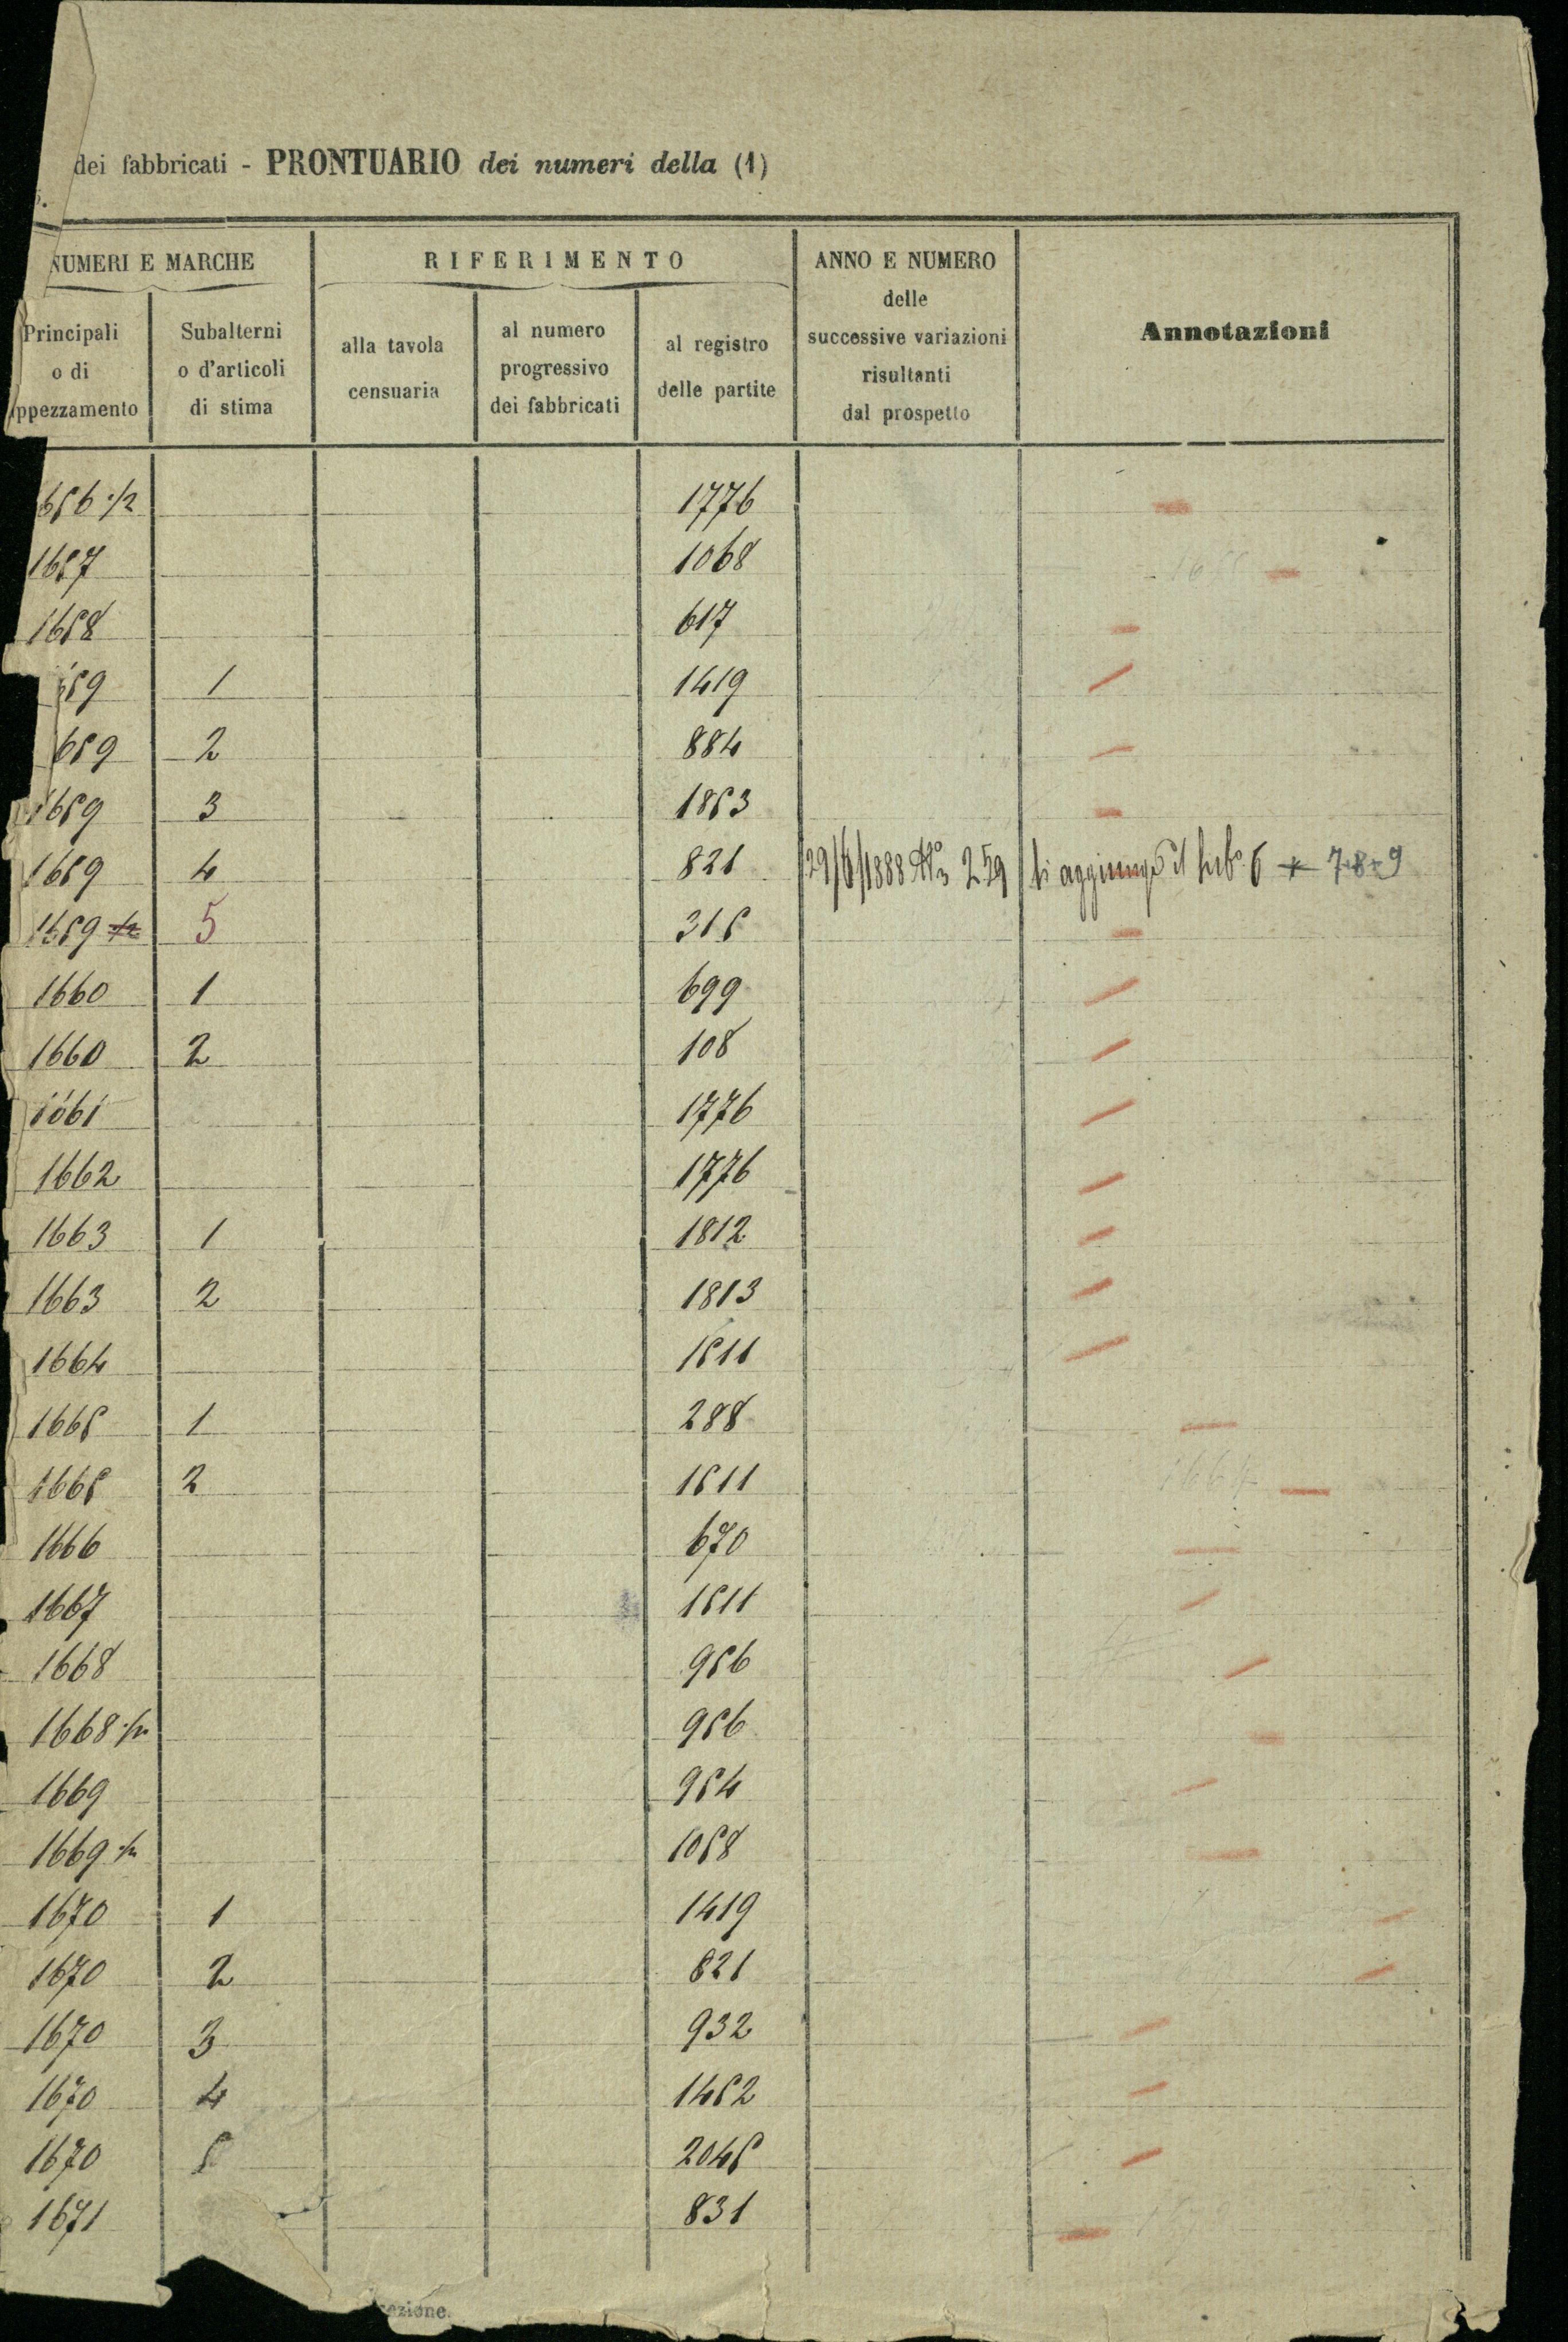 dei fabbricati - PRONTUARIO dei numeri della (1)
NUMERI E MARCHE
RIFERIMENTO
ANNO E NUMERO
delle
successive variazioni
risultanti
dal prospetto
Annotazioni
Principali
o di
ppezzamento
Subalterni
o d'articoli
di stima
alla tavola
censuaria
al numero
progressivo
dei fabbricati
al registro
delle partite
656 1/2 1776
1657 1068
1658 617
659 1 1419
659 2 884
1659 3 1853
1659 4 821 29/6/1888 No 259 si aggiunge il sub. 6 + 7+8+9
1659 1/2 5 315
1660 1 699
1660 2 108
1661 1776
1662 1776
1663 1 1812
1663 2 1813
1664 1511
1665 1 288
1665 2 1511 1664
1666 670
1667 1511
1668 956
1668 1/2 956
1669 954
1669 1/2 1058
1670 1 1419
1670 2 821
1670 3 932
1670 4 1452
1670 5 2045
1671 831
ezione.